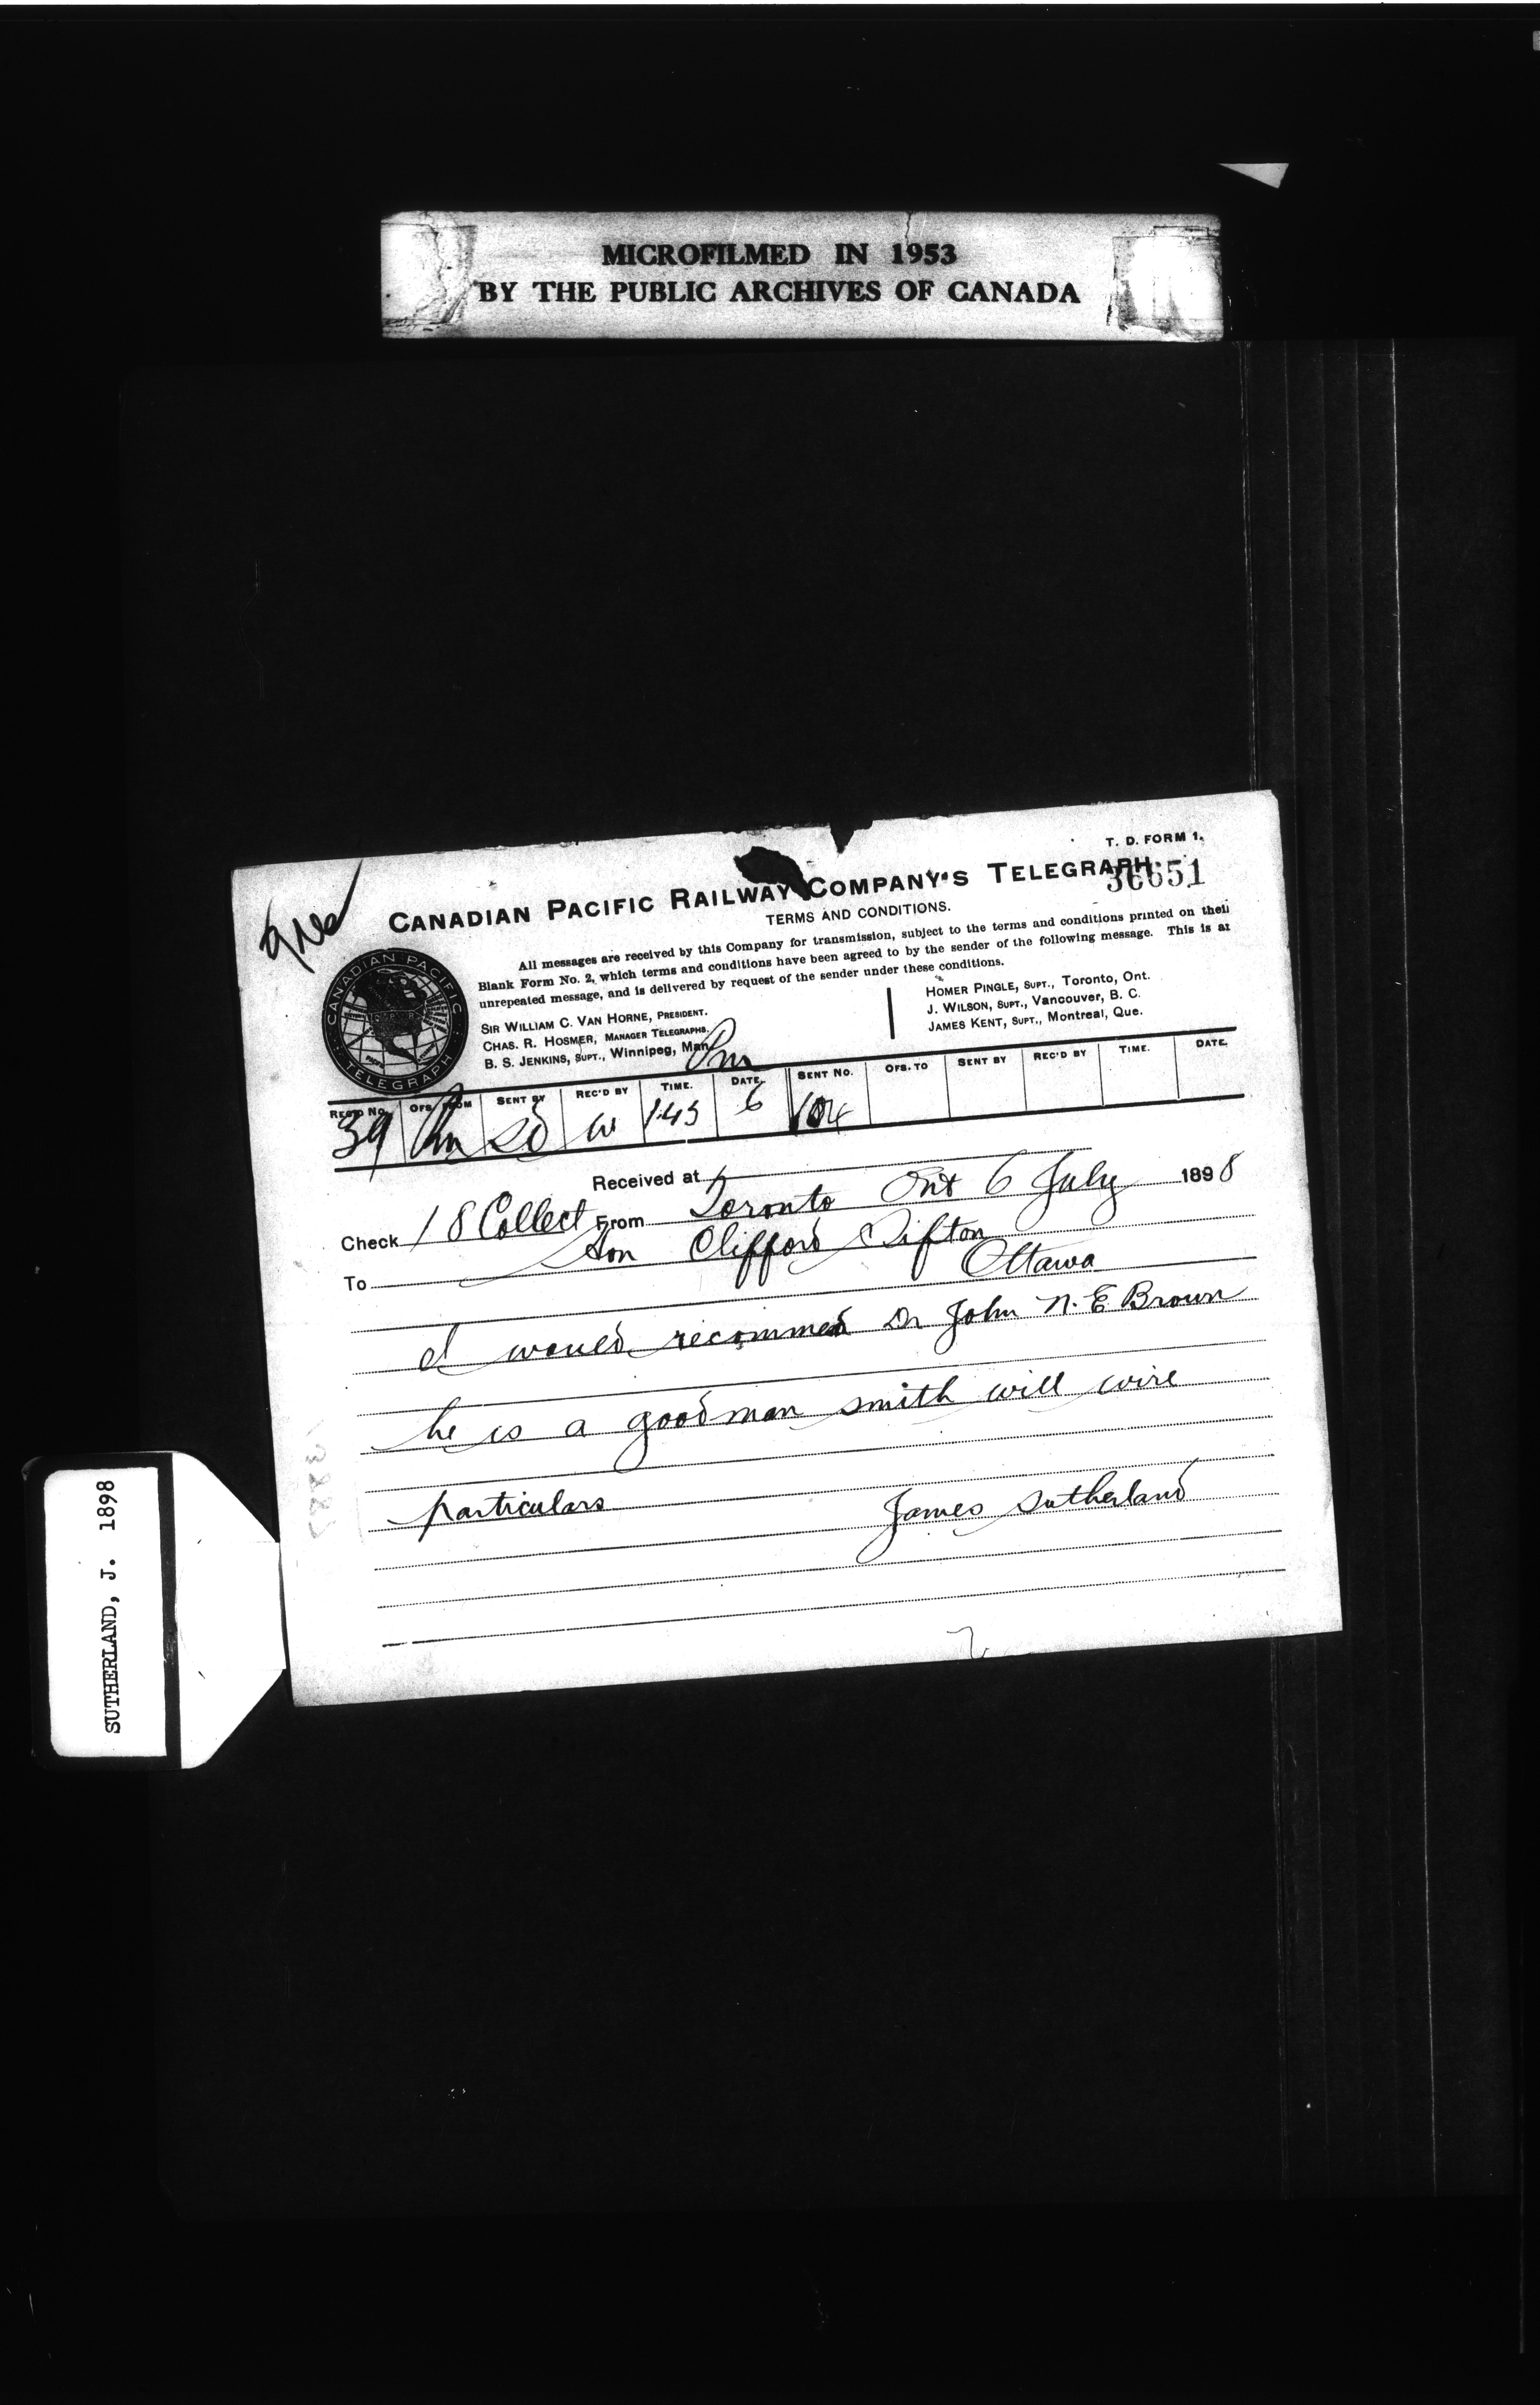 MICROFILMED IN 1953
BY THE PUBLIC ARCHIVES OF CANADA
T. D. FORM 1.
CANADIAN PACIFIC RAILWAY COMPANY'S TELEGRAPH.
36651
TERMS AND CONDITIONS.
All messages are received by this Company for transmission, subject to the terms and conditions printed on their
Blank Form No. 2, which terms and conditions have been agreed to by the sender of the following message. This is an
unrepeated message, and is delivered by request of the sender under these conditions.
SIR WILLIAM C. VAN HORNE, PRESIDENT.
CHAS. R. HOSMER, MANAGER TELEGRAPHS.
B. S. JENKINS, SUPT., Winnipeg, Man.
HOMER PINGLE, SUPT., Toronto, Ont.
J. WILSON, SUPT., Vancouver, B. C.
JAMES KENT, SUPT., Montreal, Que.
CANADIAN PACIFIC TELEGRAPH
Pm
REC'D No. OFS. FROM SENT BY REC'D BY TIME. DATE. SENT No. OFS. TO SENT BY REC'D BY TIME. DATE.
39 SD W 1.45 6 104
Received at
Check 18 Collect From Toronto Ont 6 July 1898
To Hon Clifford Sifton
Ottawa
I would recommed Dr John N. E Brown
he is a good man smith will wire
particulars James Sutherland
SUTHERLAND, J. 1898